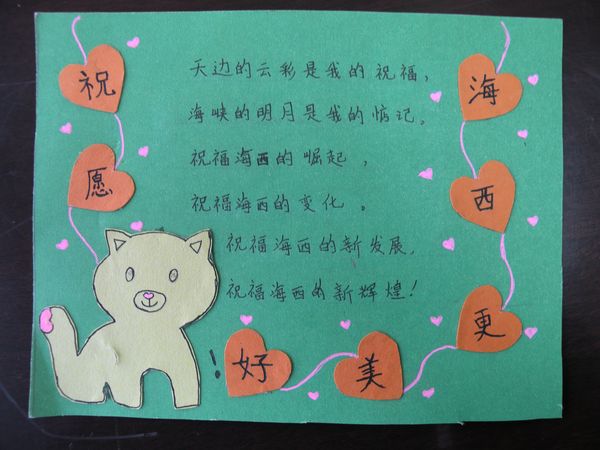 祝愿
海西更美好!
天边的云彩是我的祝福,
海峡的明月是我的惦记。
祝福海西的崛起,
祝福海西的变化。
祝福海西的新发展,
祝福海西的新辉煌!